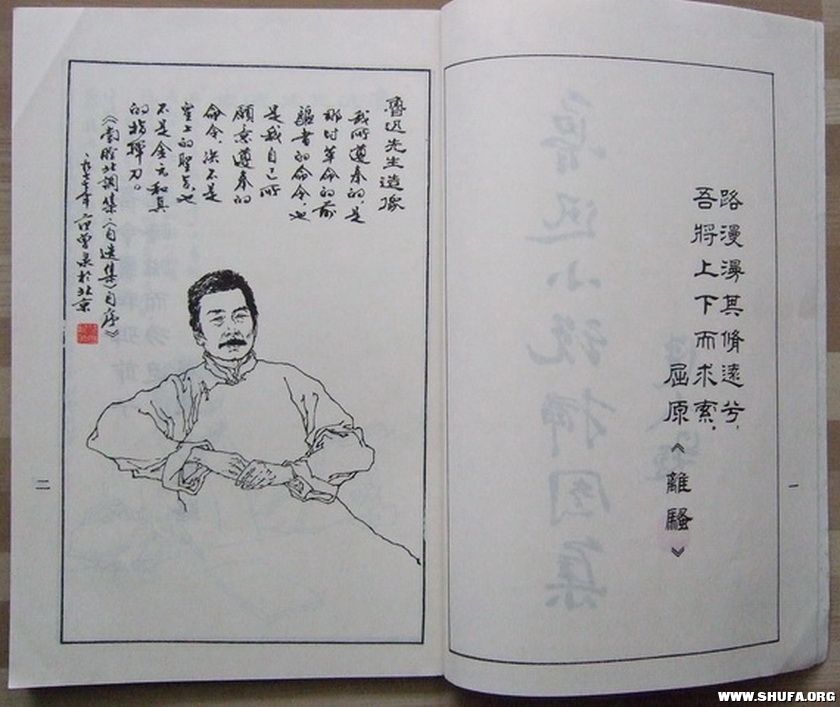 路漫漫其脩遠兮，
吾將上下而求索。
屈原《離騷》
一
魯迅先生造像
我所遵奉的，是
那时革命的前
驅者的命令，也
是我自己所
願意遵奉的
命令，决不是
皇上的聖旨，也
不是金元和真
的指揮刀。
《南腔北調集〈自选集〉自序》
范曾 於北京
二
WWW.SHUFA.ORG